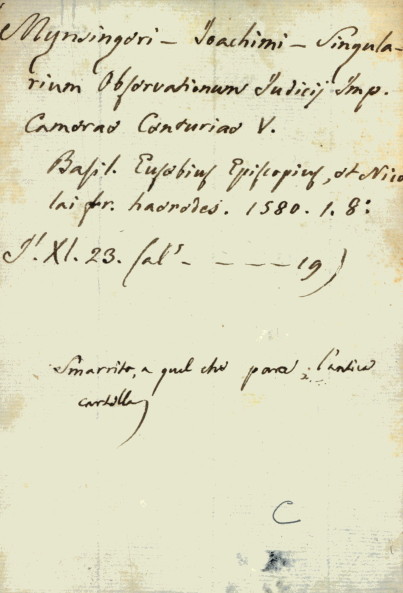 Mynsingeri – Joachimi – Singula-
rium Observationum Judicij Imp.
Camerae Centuriae V.
Basil. Eusebius Episcopius, et Nico
lai fr. haeredes. 1580. 1. 8:
XI. 23. (al.s - — — — 19)
Smarrito, a quel che pare, l'antica
cartella
C